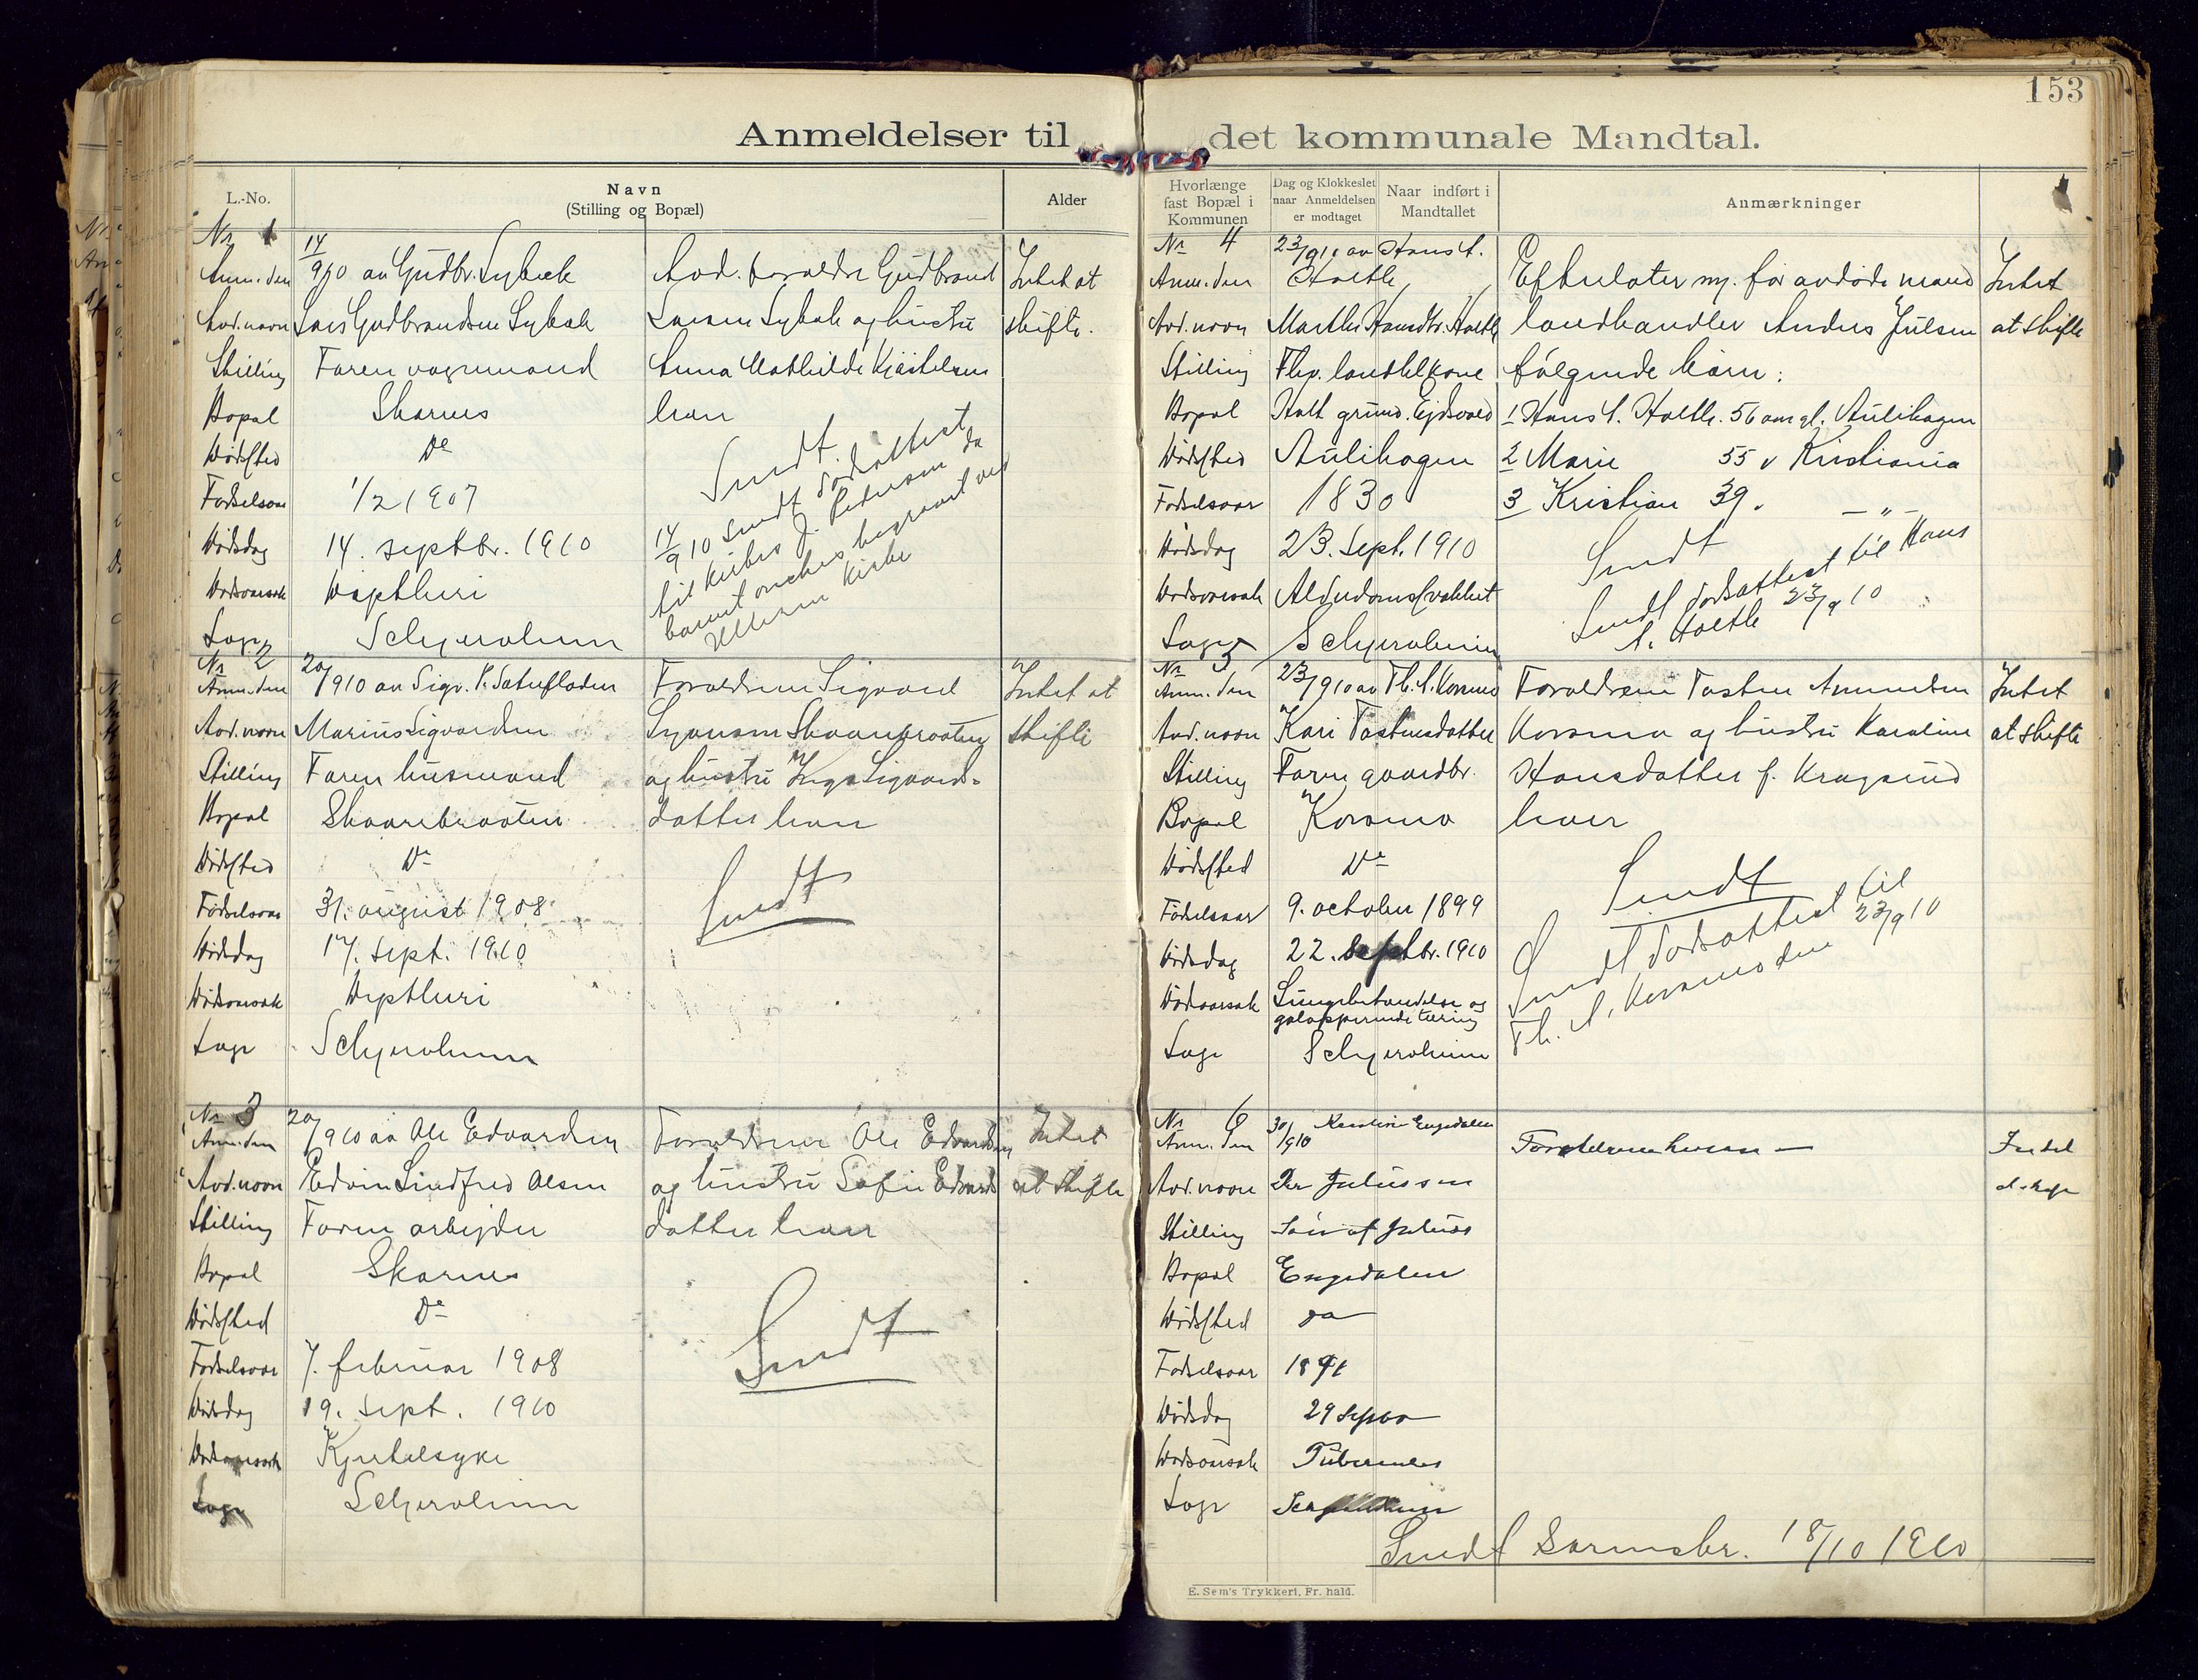 153
Anmeldelser til det kommunale Mandtal.
L.-No.
Navn
(Stilling og Bopæl)
Alder
Nr 1
Anm. den 14/9 10 av Gudbr. Sybak
Avd. navn Lars Gudbrandsen Sybak
Stilling Faren vognmand
Bopæl Skarnes
Dødsted Do
Fødselsaar 1/2 1907
Dødsdag 14. septbr. 1910
Dødsaarsak Difteri
Læge Scheroliun
Avd. foreldre Gudbrand
Larsen Sybak og hustru
Anna Mathilde Kristensen
lever
Sendt.
14/9 10 sendt dødsattest
til Kirkes J. Pedersen da
barnet ønskes begravet ved
Ullern Kirke
Intet at
skifte.
Nr 2
Anm. den 20/9 10 av Sigv.
Avd. navn Marius Sigvardsen
Stilling Faren husmand
Bopæl Skaarebraaten
Dødsted Do
Fødselsaar 31. august 1908
Dødsdag 17. sept. 1910
Dødsaarsak Difteri
Læge
Forældrene Sigvard
og hustru Inga Sigvards-
datter lever
Sendt
Intet at
skifte
Nr 3
Anm. den 20/9 10 av Ole Edvardsen
Avd. navn Edvin Sindfred Olsen
Stilling Faren arbejder
Bopæl Skarnes
Dødsted Do
Fødselsaar 7. februar 1908
Dødsdag 19. sept. 1910
Dødsaarsak Kjertelsyke
Læge
Forældrene Ole Edvardsen
og hustru Sofie Edvards
datter lever
Sendt
Intet
at skifte
Hvorlænge
fast Bopæl i
Kommunen
Dag og Klokkeslet
naar Anmeldelsen
er modtaget
Naar indført i
Mandtallet
Anmærkninger
Nr 4
Anm. den 23/9 10 av Hans A. Holtle
Avd. navn Marthe Hansdtr. Holtle
Stilling Fhv. landhl.kone
Bopæl Holt grund. Ejdsvold
Dødsted Aulihagen
Fødselsaar 1830
Dødsdag 23. Sept. 1910
Dødsaarsak Alderdomssvakhet
Læge
Efterlater sig før avdøde mand
landhandler Anders Julsen
følgende børn:
1 Hans A. Holtle. 56 aar gl. Aulihagen
2 Marie 55 " Kristiania
3 Kristian 39. — " —
Sendt
Sendt dødsattest til Hans
A. Holtle 23/9 10
Intet
at skifte
Nr 5
Anm. den 23/9 10 av Th. A. Korsmo
Avd. navn Kari Tostensdatter
Stilling Faren gaardbr.
Bopæl Korsmo
Dødsted Do
Fødselsaar 9. october 1899
Dødsdag 22. Septbr. 1910
Dødsaarsak Lungebetændelse og
galopperende tæring
Læge
Forældrene Tosten Ammundsen
Korsmo og hustru Karoline
Hansdatter f. Kragsund
lever
Sendt
Sendt dødsattest til
Th. A. Korsmo den 23/9 10
Intet
at skifte
Nr 6
Anm. den 30/9 10 Karoline Engedalen
Avd. navn Per Juliussen
Stilling Søn af Julius
Bopæl Engedalen
Dødsted do
Fødselsaar
Dødsdag 29 Septbr
Dødsaarsak Tuberculos
Læge
Forældrene lever —
Intet
Sendt Sorenskr. 18/10 1910
E. Sem's Trykkeri, Fr. hald.